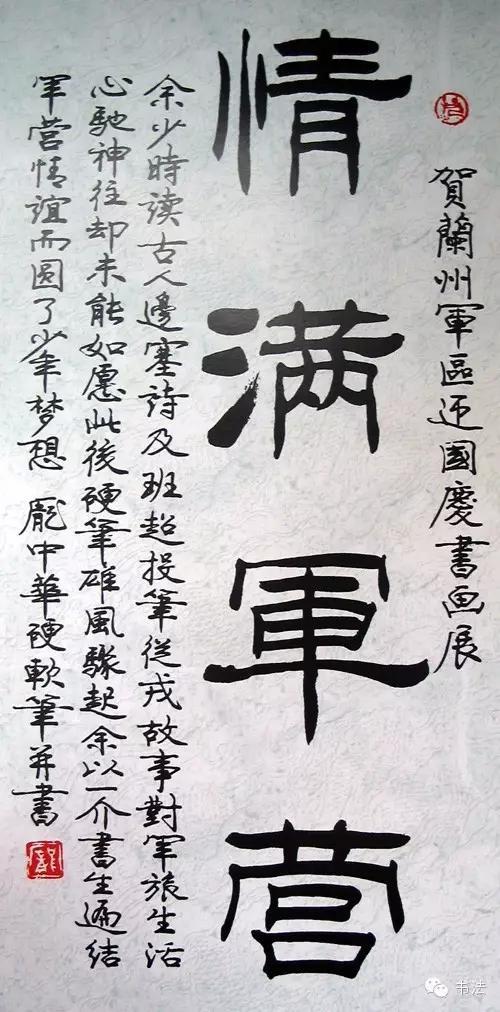 賀蘭州軍區迎國慶書画展
情满軍营
余少時读古人邊塞詩及班超投筆從戎故事對军旅生活
心馳神往却未能如愿此後硬筆雄風驟起余以一介書生遍结
军营情誼而圆了少年梦想 龐中華硬軟筆并書
书法